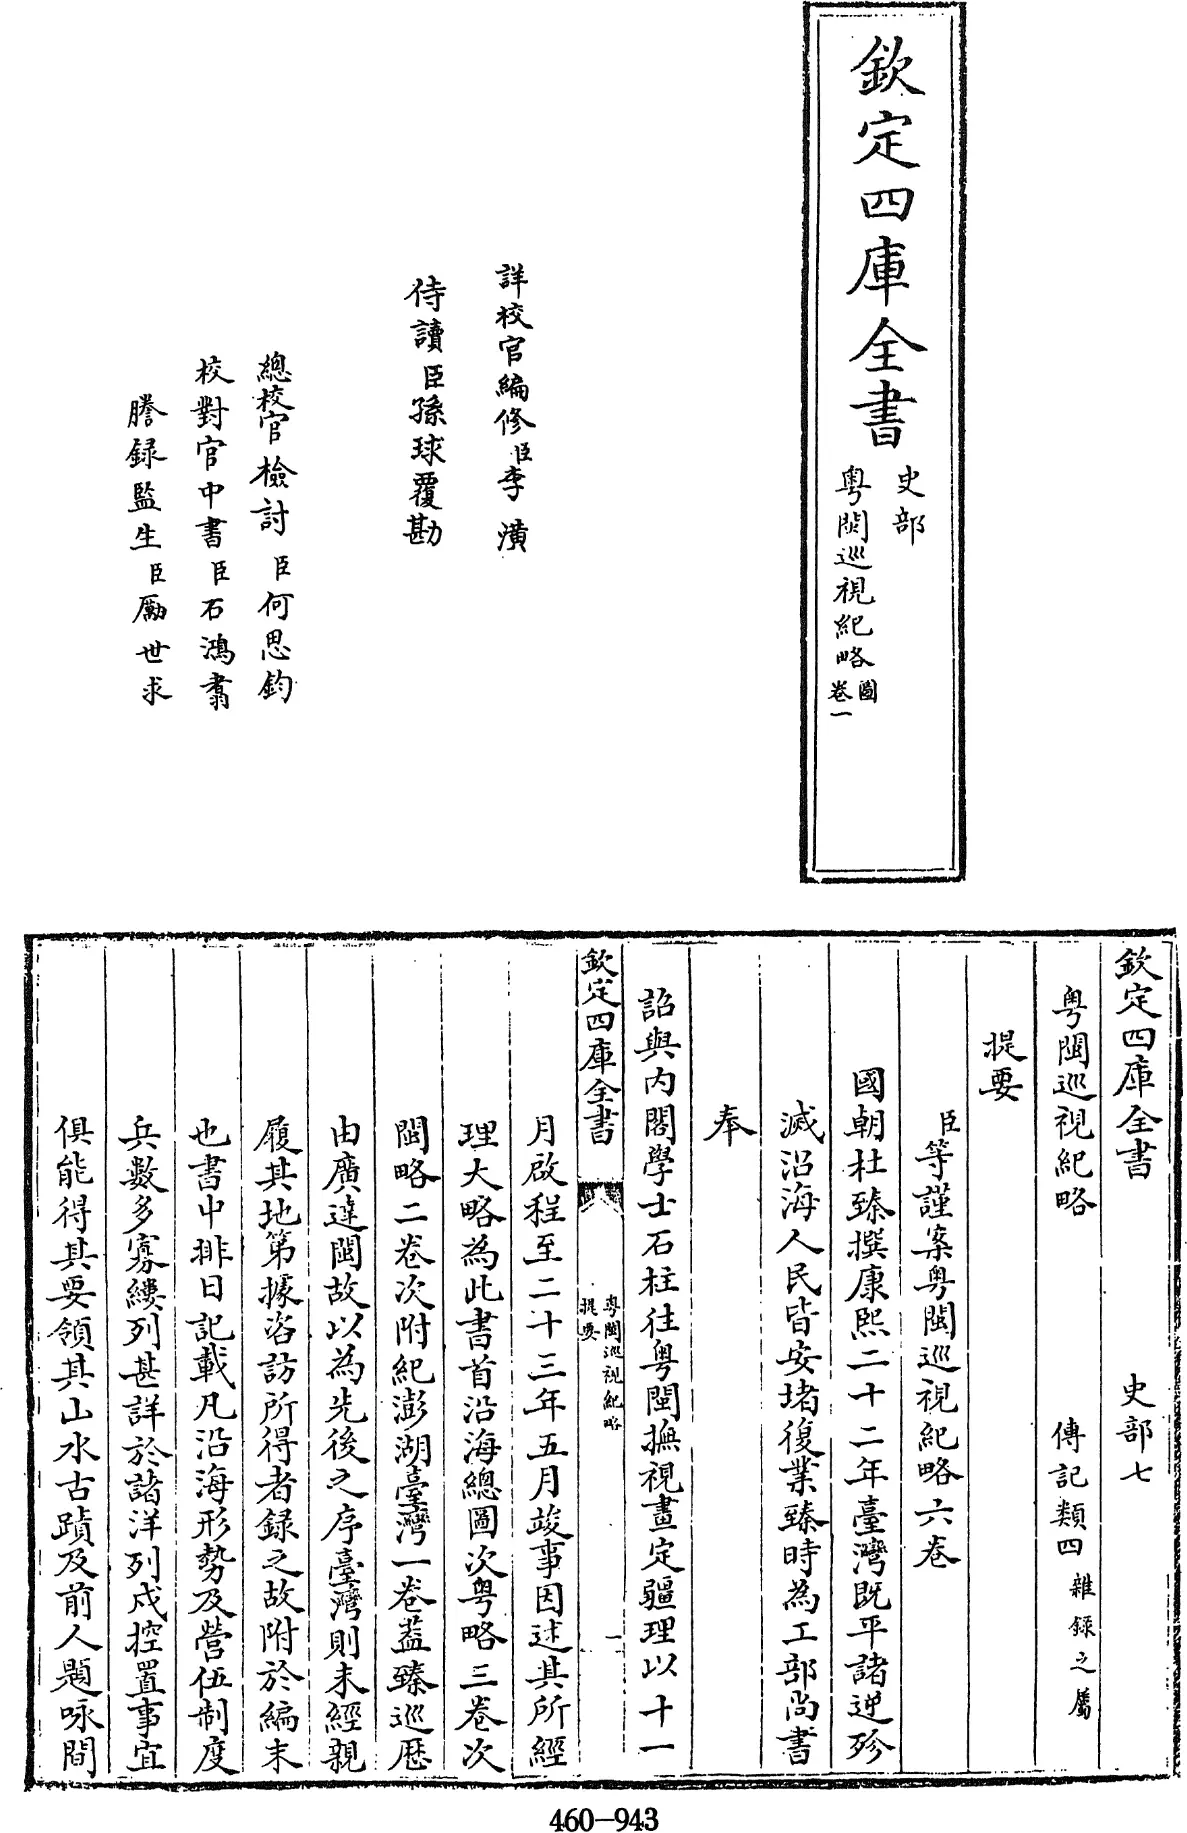 欽定四庫全書
史部
粤閩巡視紀略
圖
卷一
詳校官編修臣李潢
侍讀臣孫球覆勘
總校官檢討臣何思鈞
校對官中書臣石鴻翥
謄録監生臣勵世求
欽定四庫全書 史部七
粤閩巡視紀略 傳記類四雜録之屬
提要
臣等謹案粤閩巡視紀略六卷
國朝杜臻撰康熙二十二年臺灣既平諸逆殄
滅沿海人民皆安堵復業臻時為工部尚書
奉
詔與内閣學士石柱往粤閩撫視畫定疆理以十一
欽定四庫全書
粤閩巡視紀略
提要
一
月啟程至二十三年五月竣事因述其所經
理大略為此書首沿海總圖次粤略三卷次
閩略二卷次附紀澎湖臺灣一卷葢臻巡歴
由廣達閩故以為先後之序臺灣則未經親
履其地第據咨訪所得者録之故附於編末
也書中排日記載凡沿海形勢及營伍制度
兵數多寡縷列甚詳於諸洋列戍控置事宜
俱能得其要領其山水古蹟及前人題咏間
460-943